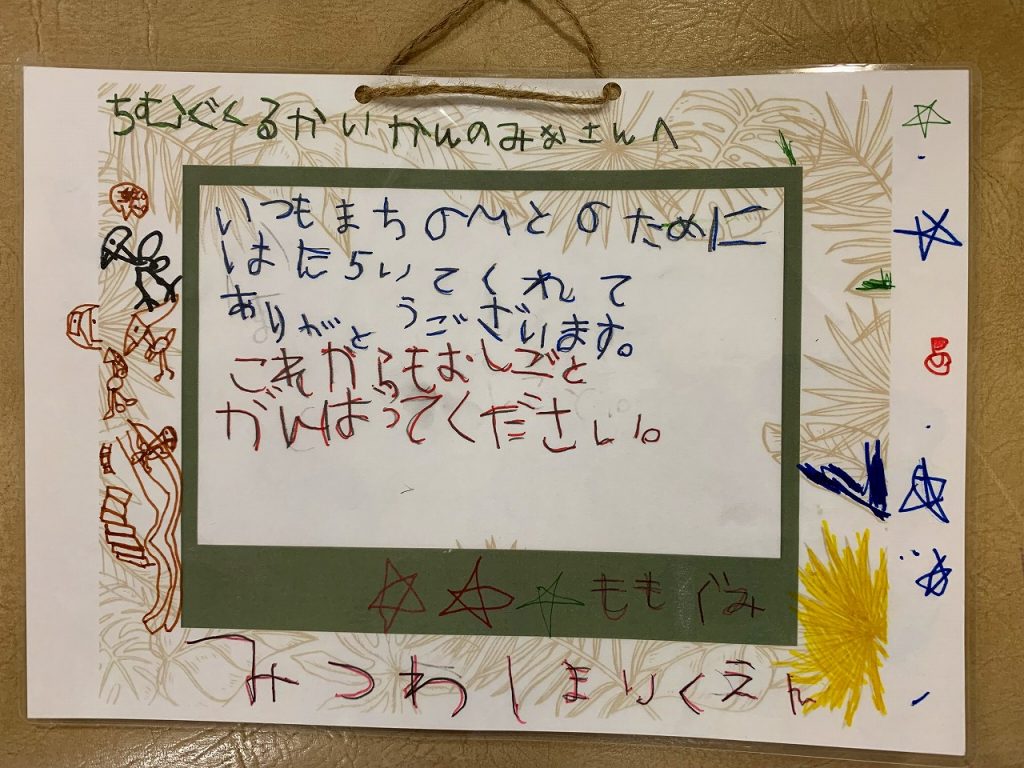 ちむぐくるかいかんのみなさんへ
いつもまちのひとのために
はたらいてくれて
ありがとうございます。
これからもおしごと
がんばってください。
ももぐみ
みつわしまりくえん